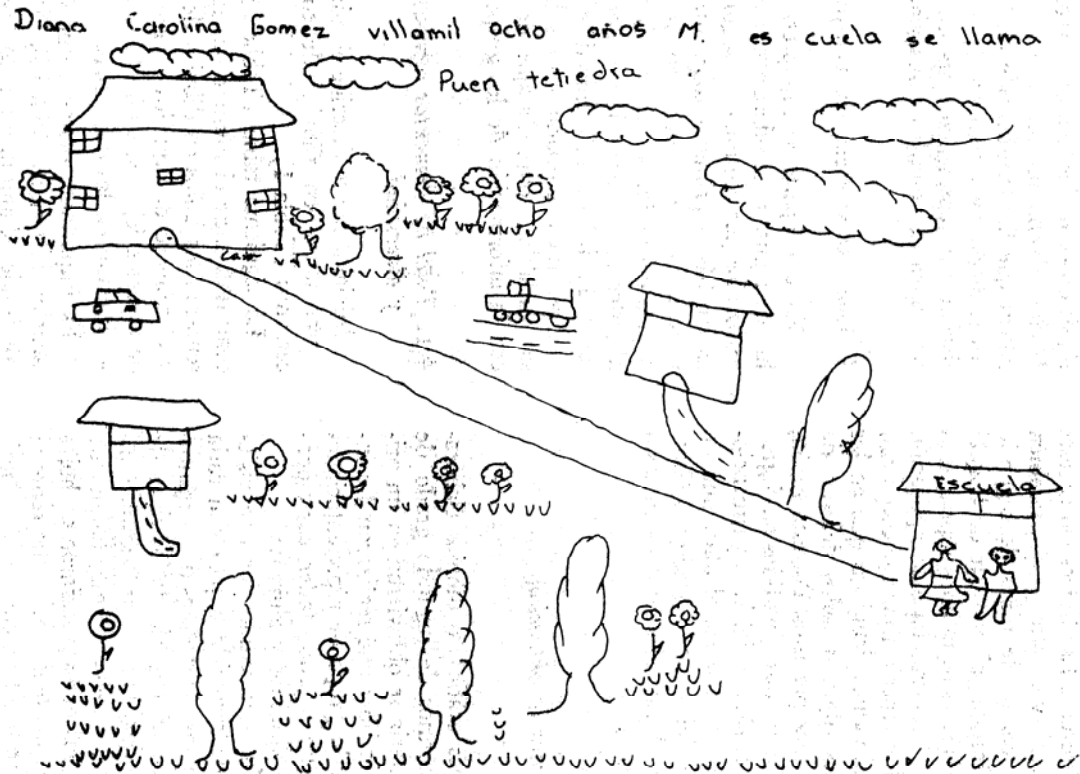 Diana Carolina Gomez villamil ocho años M. es cuela se llama
Puen tetiedra
Escuela